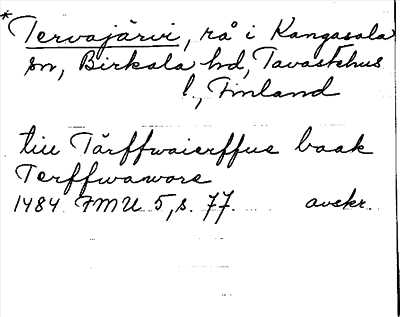 *Tervajärvi, rå i Kangasala
sn, Birkala hd, Tavastehus
l., Finland
till Tärffwaierffus baak
Terffwawore
1484 FMU 5, s. 77. avskr.